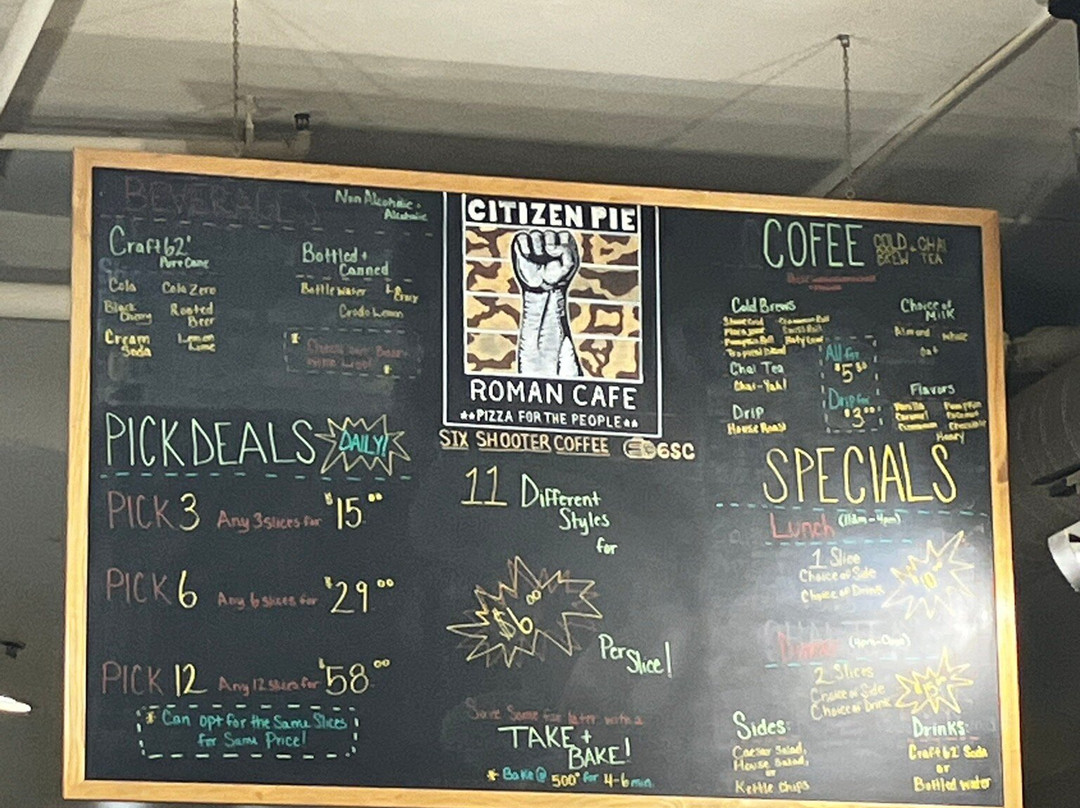 BEVERAGES
Non Alcoholic +
Alcoholic
Craft 62'
Pure Cane
Cola
Cola Zero
Black
Cherry
Rooted
Beer
Cream
Soda
Lemon
Lime
Bottled +
Canned
Bottle Water
Crado Lemon
PICK DEALS
DAILY!
PICK 3 Any 3 slices for $15.00
PICK 6 Any 6 slices for $29.00
PICK 12 Any 12 slices for $58.00
* Can opt for the Same Slices
for Same Price!
CITIZEN PIE
ROMAN CAFE
PIZZA FOR THE PEOPLE
SIX SHOOTER COFFEE
6SC
11 Different
Styles
for
$6.00
Per Slice!
Save Some for later with a
TAKE +
BAKE!
* Bake @ 500° for 4-6 min.
COFEE
COLD
BREW
+
CHAI
TEA
Cold Brews
Cinnamon Roll
Swiss Roll
Pumpkin Roll
Tropical Island
Chai Tea
Chai-Yah!
Drip
House Roast
All for
$5.50
Drip for
$3.00
Choice of
Milk
Almond
Whole
Oat
Flavors
Vanilla
Caramel
Cinnamon
Pumpkin
Coconut
Chocolate
Honey
SPECIALS
Lunch (11am-4pm)
1 Slice
Choice of Side
Choice of Drink
Dinner
2 Slices
Choice of Side
Choice of Drink
Sides:
Caesar Salad,
House Salad,
or
Kettle Chips
Drinks:
Craft 62' Soda
or
Bottled water